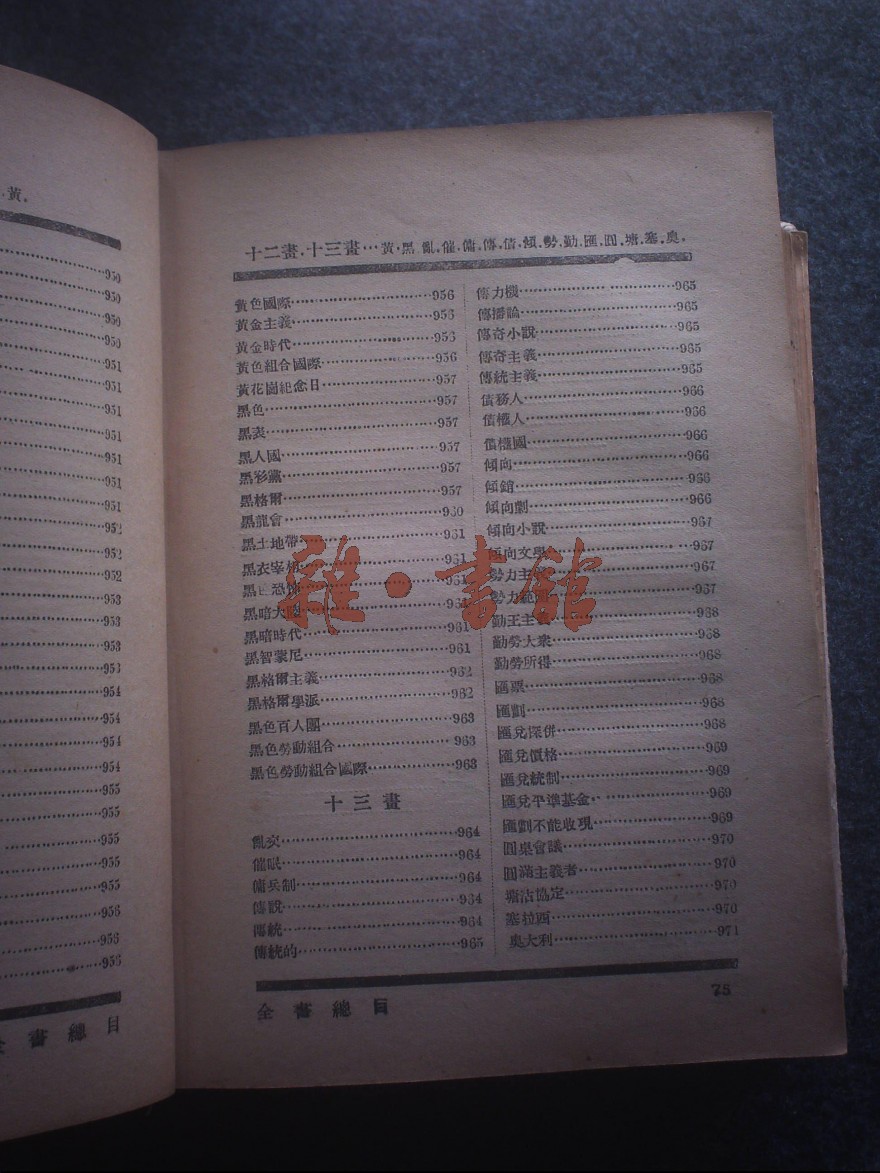 黃.
950
950
950
951
951
951
951
951
951
951
952
952
952
953
953
953
953
954
954
954
954
955
955
955
956
956
956
全書總目
十二畫.十三畫…黃.黑.亂.催.傭.傳.債.傾.勢.勤.匯.圓.塘.塞.奥.
黃色國際…956
黃金主義…956
黃金時代…956
黃色組合國際…956
黃花崗紀念日…957
黑色…957
黑表…957
黑人國…957
黑彩黨…957
黑格爾…957
黑龍會…960
黑土地帶…961
黑衣宰相…961
黑色恐怖…961
黑暗大陸…961
黑暗時代…961
黑智蒙尼…961
黑格爾主義…962
黑格爾學派…962
黑色百人團…963
黑色勞動組合…963
黑色勞動組合國際…963
十三畫
亂交…964
催眠…964
傭兵制…964
傳說…964
傳統…964
傳統的…965
傳力機…965
傳播論…965
傳奇小說…965
傳奇主義…965
傳統主義…965
債務人…966
債權人…966
債權國…966
傾向…966
傾銷…966
傾向劇…966
傾向小說…967
傾向文學…967
勢力主…967
勢力範圍…967
勤王主義…968
勤勞大衆…968
勤勞所得…968
匯票…968
匯劃…968
匯兌傾併…968
匯兌價格…969
匯兌統制…969
匯兌平準基金…969
匯劃不能收現…969
圓桌會議…970
圓滿主義者…970
塘沽協定…970
塞拉西…970
奥大利…971
全書總目
75
雜·書館